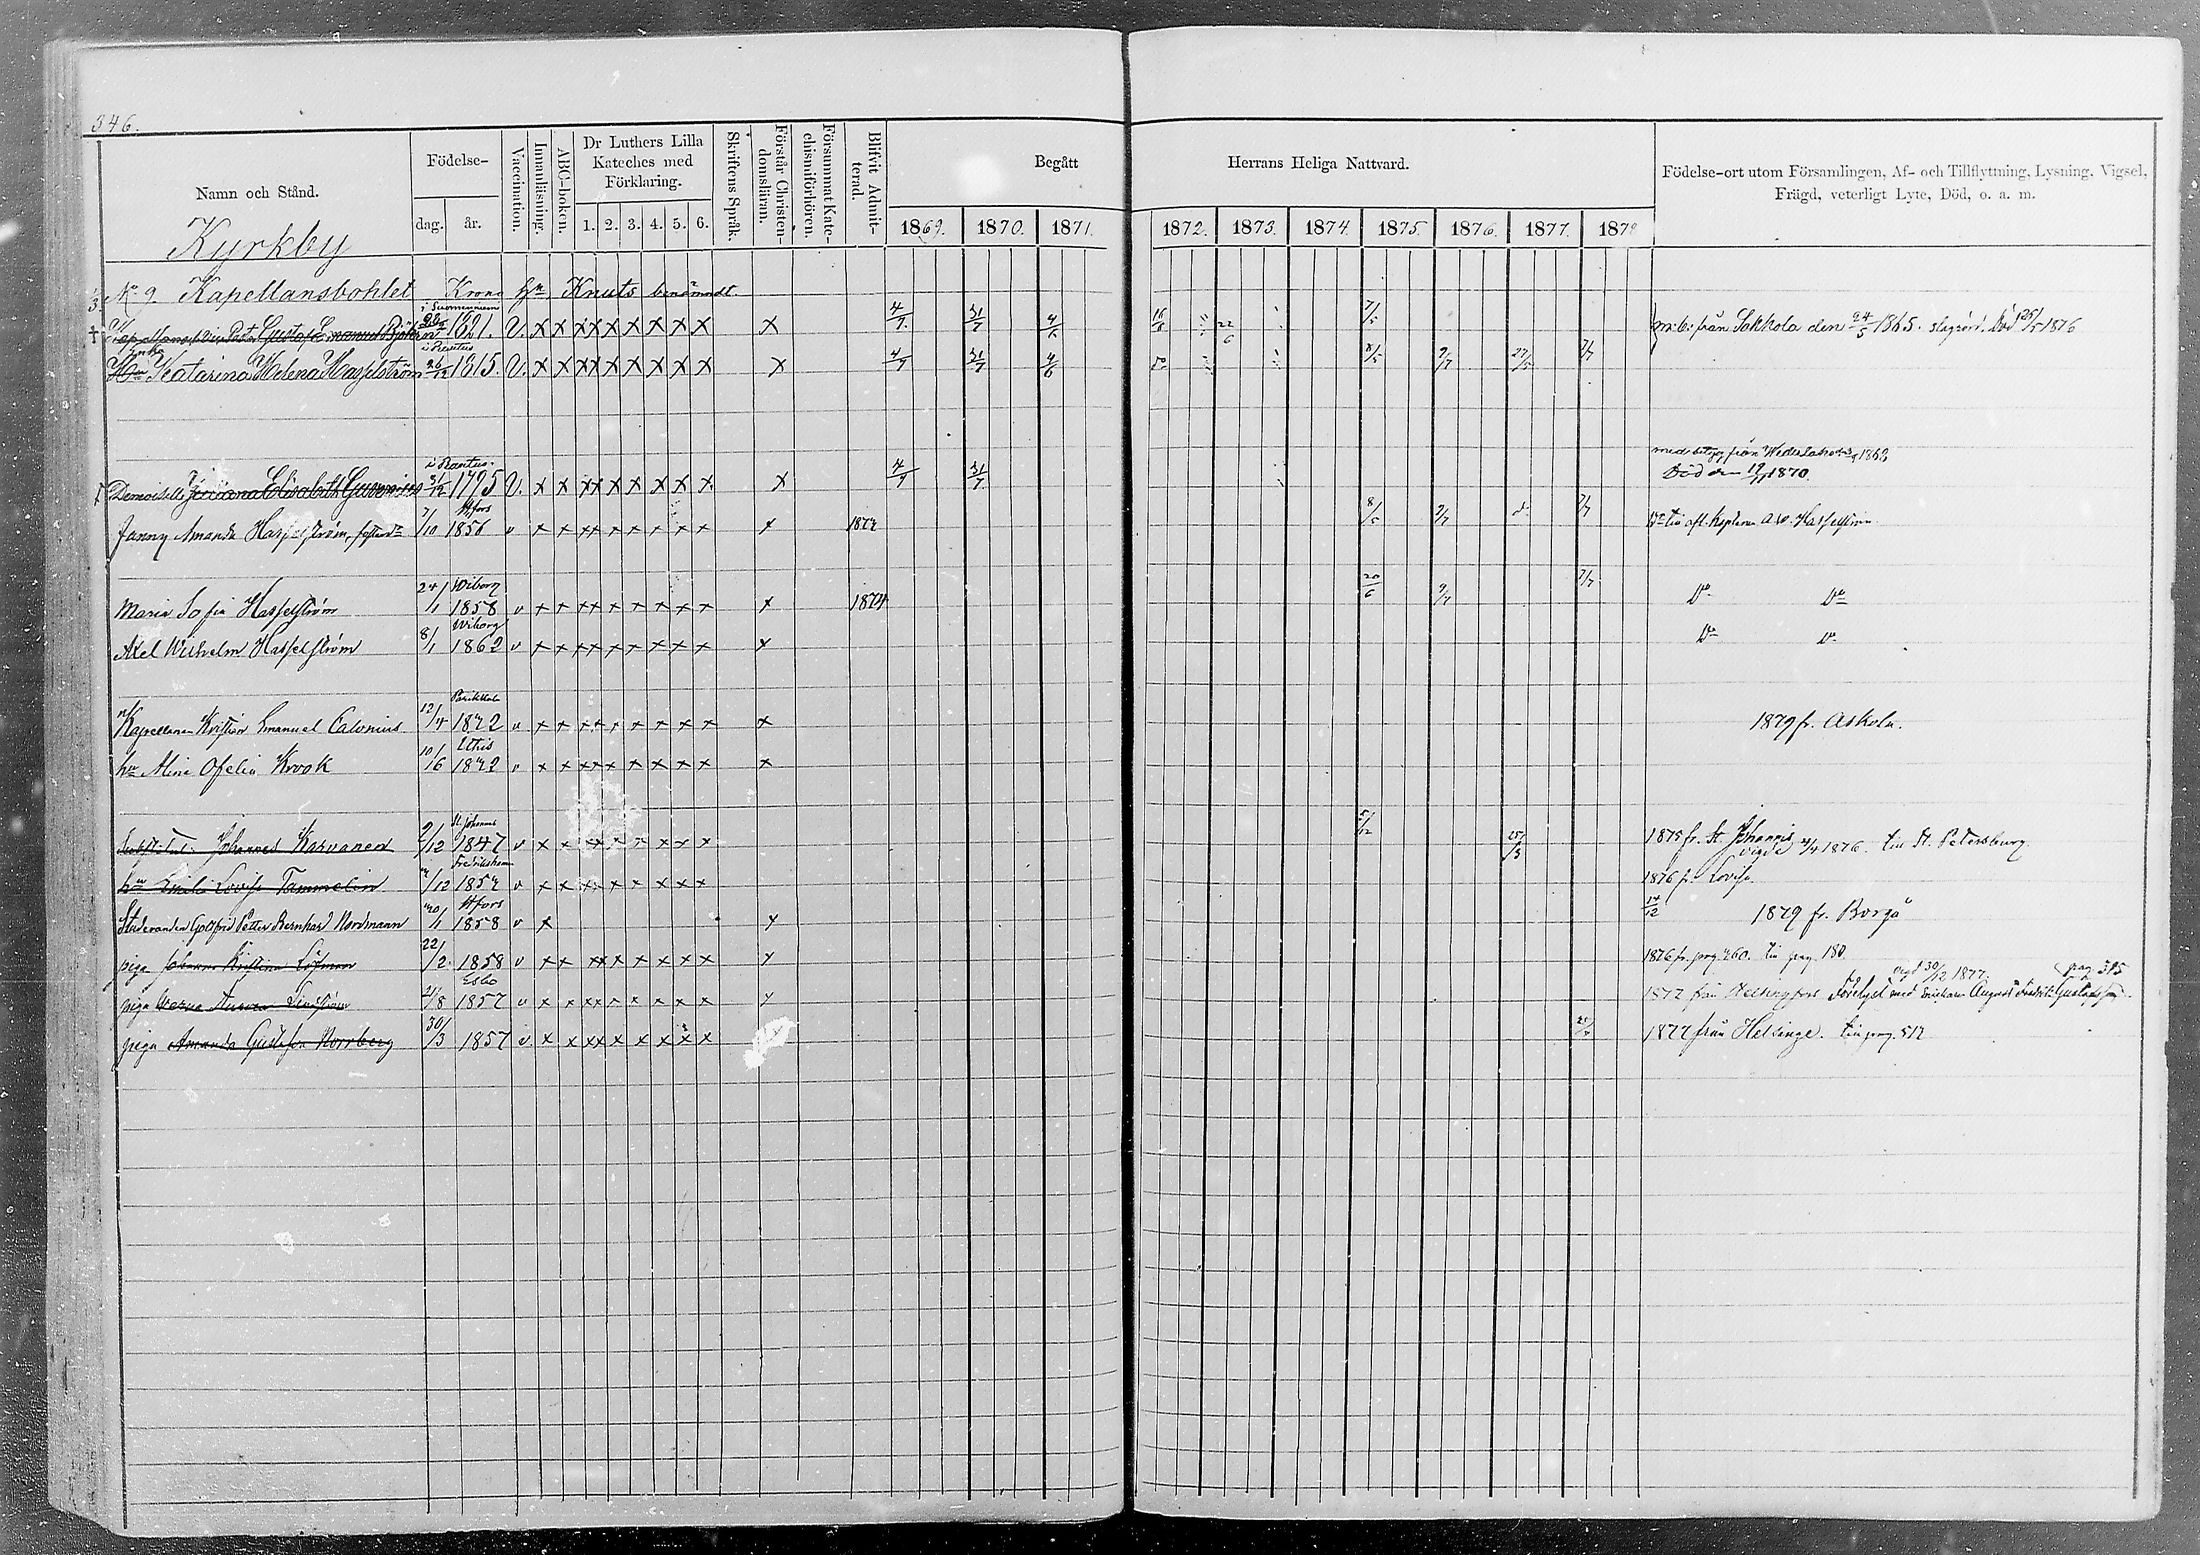 346.
Namn och Stånd.
Födelse-
dag.
år.
Vaccination.
Innanläsning.
ABC-boken.
Dr Luthers Lilla
Kateches med
Förklaring.
1. 2. 3. 4. 5. 6.
Skriftens Språk.
Förstår Christen-
domsläran.
Försummat Kate-
chismiförhören.
Blifvit Admit-
terad.
Begått
Herrans Heliga Nattvard.
1869. 1870. 1871.
1872. 1873. 1874 1875. 1876. 1877. 1878
Födelse-ort utom Församlingen, Af- och Tillflyttning, Lysning, Vigsel,
Frägd, veterligt Lyte, Död, o. a. m.
Kyrkby
No 9. Kapellansbohlet Krono Knuts benämndt
Gustaf Emanuel 1821. V. x x x x x x x x x 4/7 31/7 4/6 16/6 22/6 7/5 m: b: från Sakkola den 24/5 1865. slagrörd. Död 25/5 1876
Enka
Katarina Helena Hasselström 26/12 1815. V. x x x x x x x x x 4/7 31/7 4/6 8/5 9/7 27/5 7/7
i Rantus.
med betyg från
Demoiselle Elisabeth 1795 V. x x x x x x x x x 4/7 31/7 Död den 19/ 1870.
Fanny Amanda Hasselström, 7/10 Hfors 1856 v x x x x x x x x x 8/5 9/7 7/7
Maria Sofia Hasselström 24/1 Wiborg 1858 v x x x x x x x x x 1874 20/6 9/7 7/7 Do Do
Axel Wilhelm Hasselström 8/1 Wiborg 1862 v x x x x x x x x x Do Do
Kapellanen Kristian Emanuel Calonius 12/4 1842 v x x x x x x x x x 1879 fr. Askola.
hu Alina Ofelia Krook 10/6 1842 v x x x x x x x x x
Johannes Karvanen 9/12 St. Johannes 1847 v x x x x x x x x 5/12 25/3 1875 fr. St. Johannis vigde 1876. till St. Petersburg.
hu Emilia Lovisa Tammelin /12 Fredrikshamn v x x x x x x x x 1876 fr. Lovisa
Studeranden Gottfrid Petter Bernhard Nordmann Hfors 1858 v x x 14/12 1879 fr. Borgå
piga Johanna Kristina Löfman 22/2 1858 v x x x x x x x x x 1876 fr. pag. 460. till pag. 180.
vigd 30/12 1877. pag 395
piga Aurora 21/8 Esbo 1857 v x x x x x x x x x 1877 från Helsingfors med August Gustafsson
piga Amanda Gustafva Norrberg 30/3 1857 v x x x x x x x x 1877 från Helsinge. till pag. 512